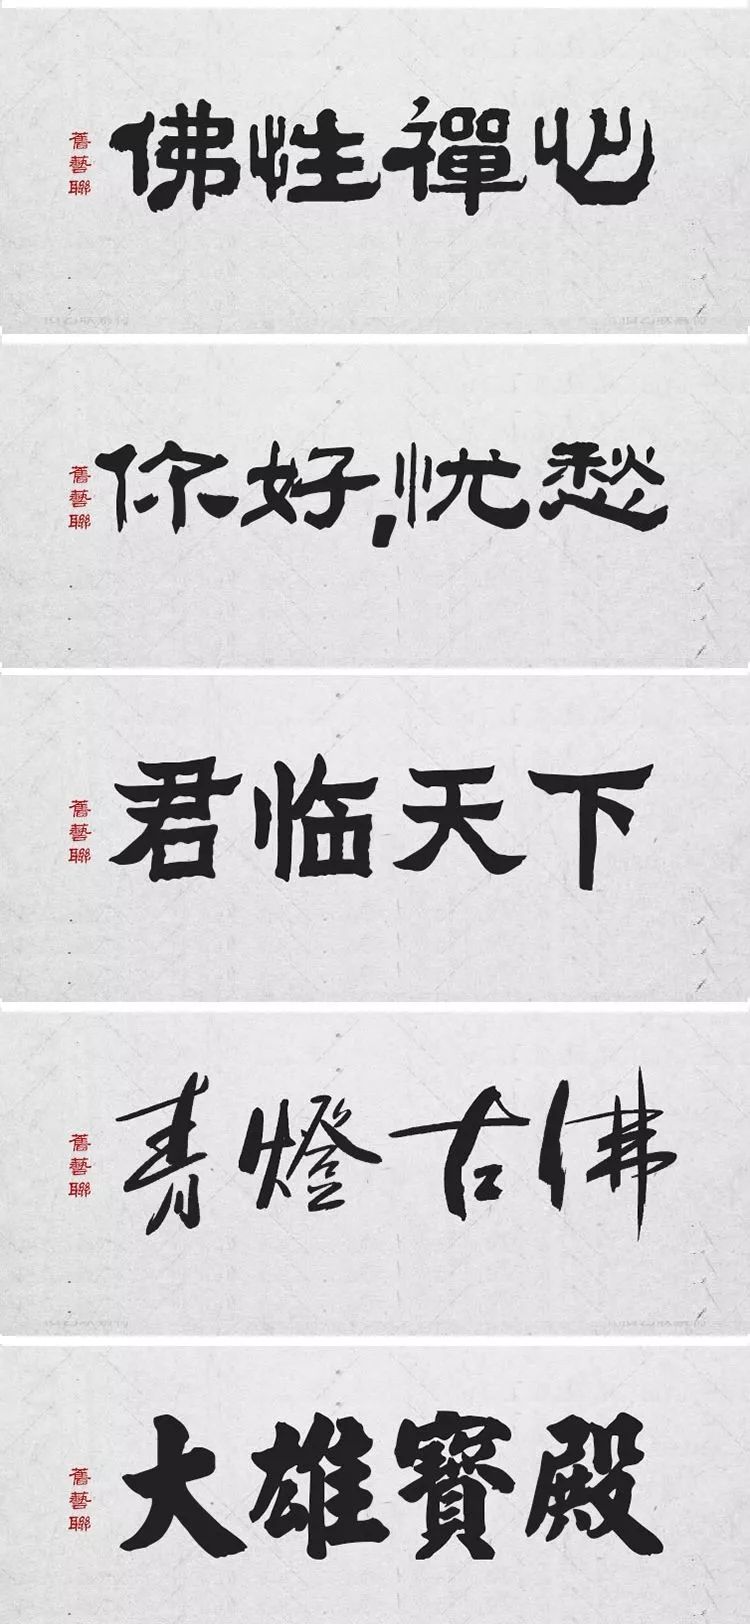 舊藝聯
佛性禪心
舊藝聯
你好,忧愁
舊藝聯
君临天下
舊藝聯
青燈古佛
舊藝聯
大雄寶殿